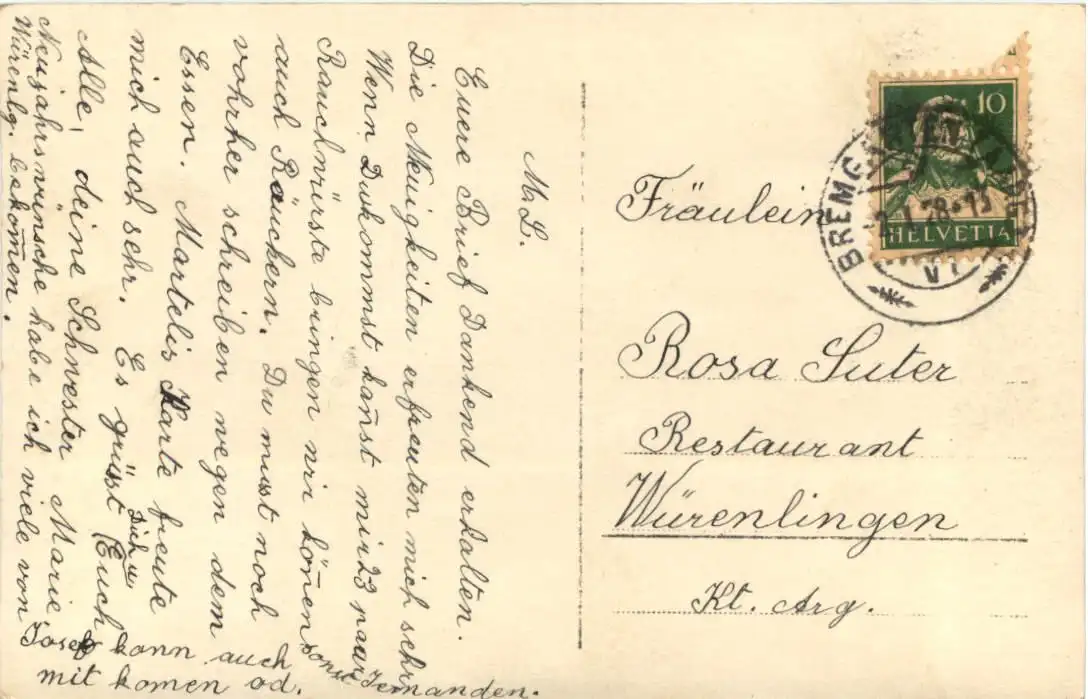 M. L.
Euere Brief Dankend erhalten.
Die Neuigkeiten erfreuten mich sehr
Wenn Du kommst kan̄st mir 23 paar
Rauchwürste bringen wir kön̄en
auch Räuckern. Du musst noch
vohrher schreiben wegen dem
Essen. Martelis Karte freute
mich auch sehr. Es grüsst Euch
Dich u.
Alle, deine Schwester Marie
Neujahrswünsche habe ich viele von
Würenlg. bekom̄en.
Josef kann auch
mit komen od. sonst Jemanden.
Fräulein
Rosa Suter
Restaurant
Würenlingen
Kt. Arg.
10
HELVETIA
BREMGARTEN
2.I.28
VI